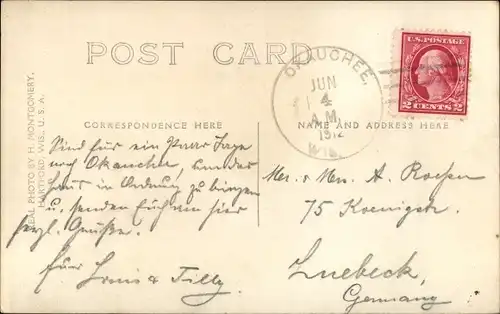 POST CARD
OKAUCHEE,
JUN
4
A.M.
1912
WIS.
U.S. POSTAGE
2 CENTS 2
REAL PHOTO BY H. MONTGOMERY.
HARTFORD, WIS., U. S. A.
CORRESPONDENCE HERE
NAME AND ADDRESS HERE
Sind für ein Paar Tage
nach Okauchee, um das
Haus in Ordnung zu bringen
u. senden Euch von hier
herzl. Grüße.
Euer Louis & Tilly.
Mr. & Mrs. A.
75 Koenigstr.
Luebeck,
Germany